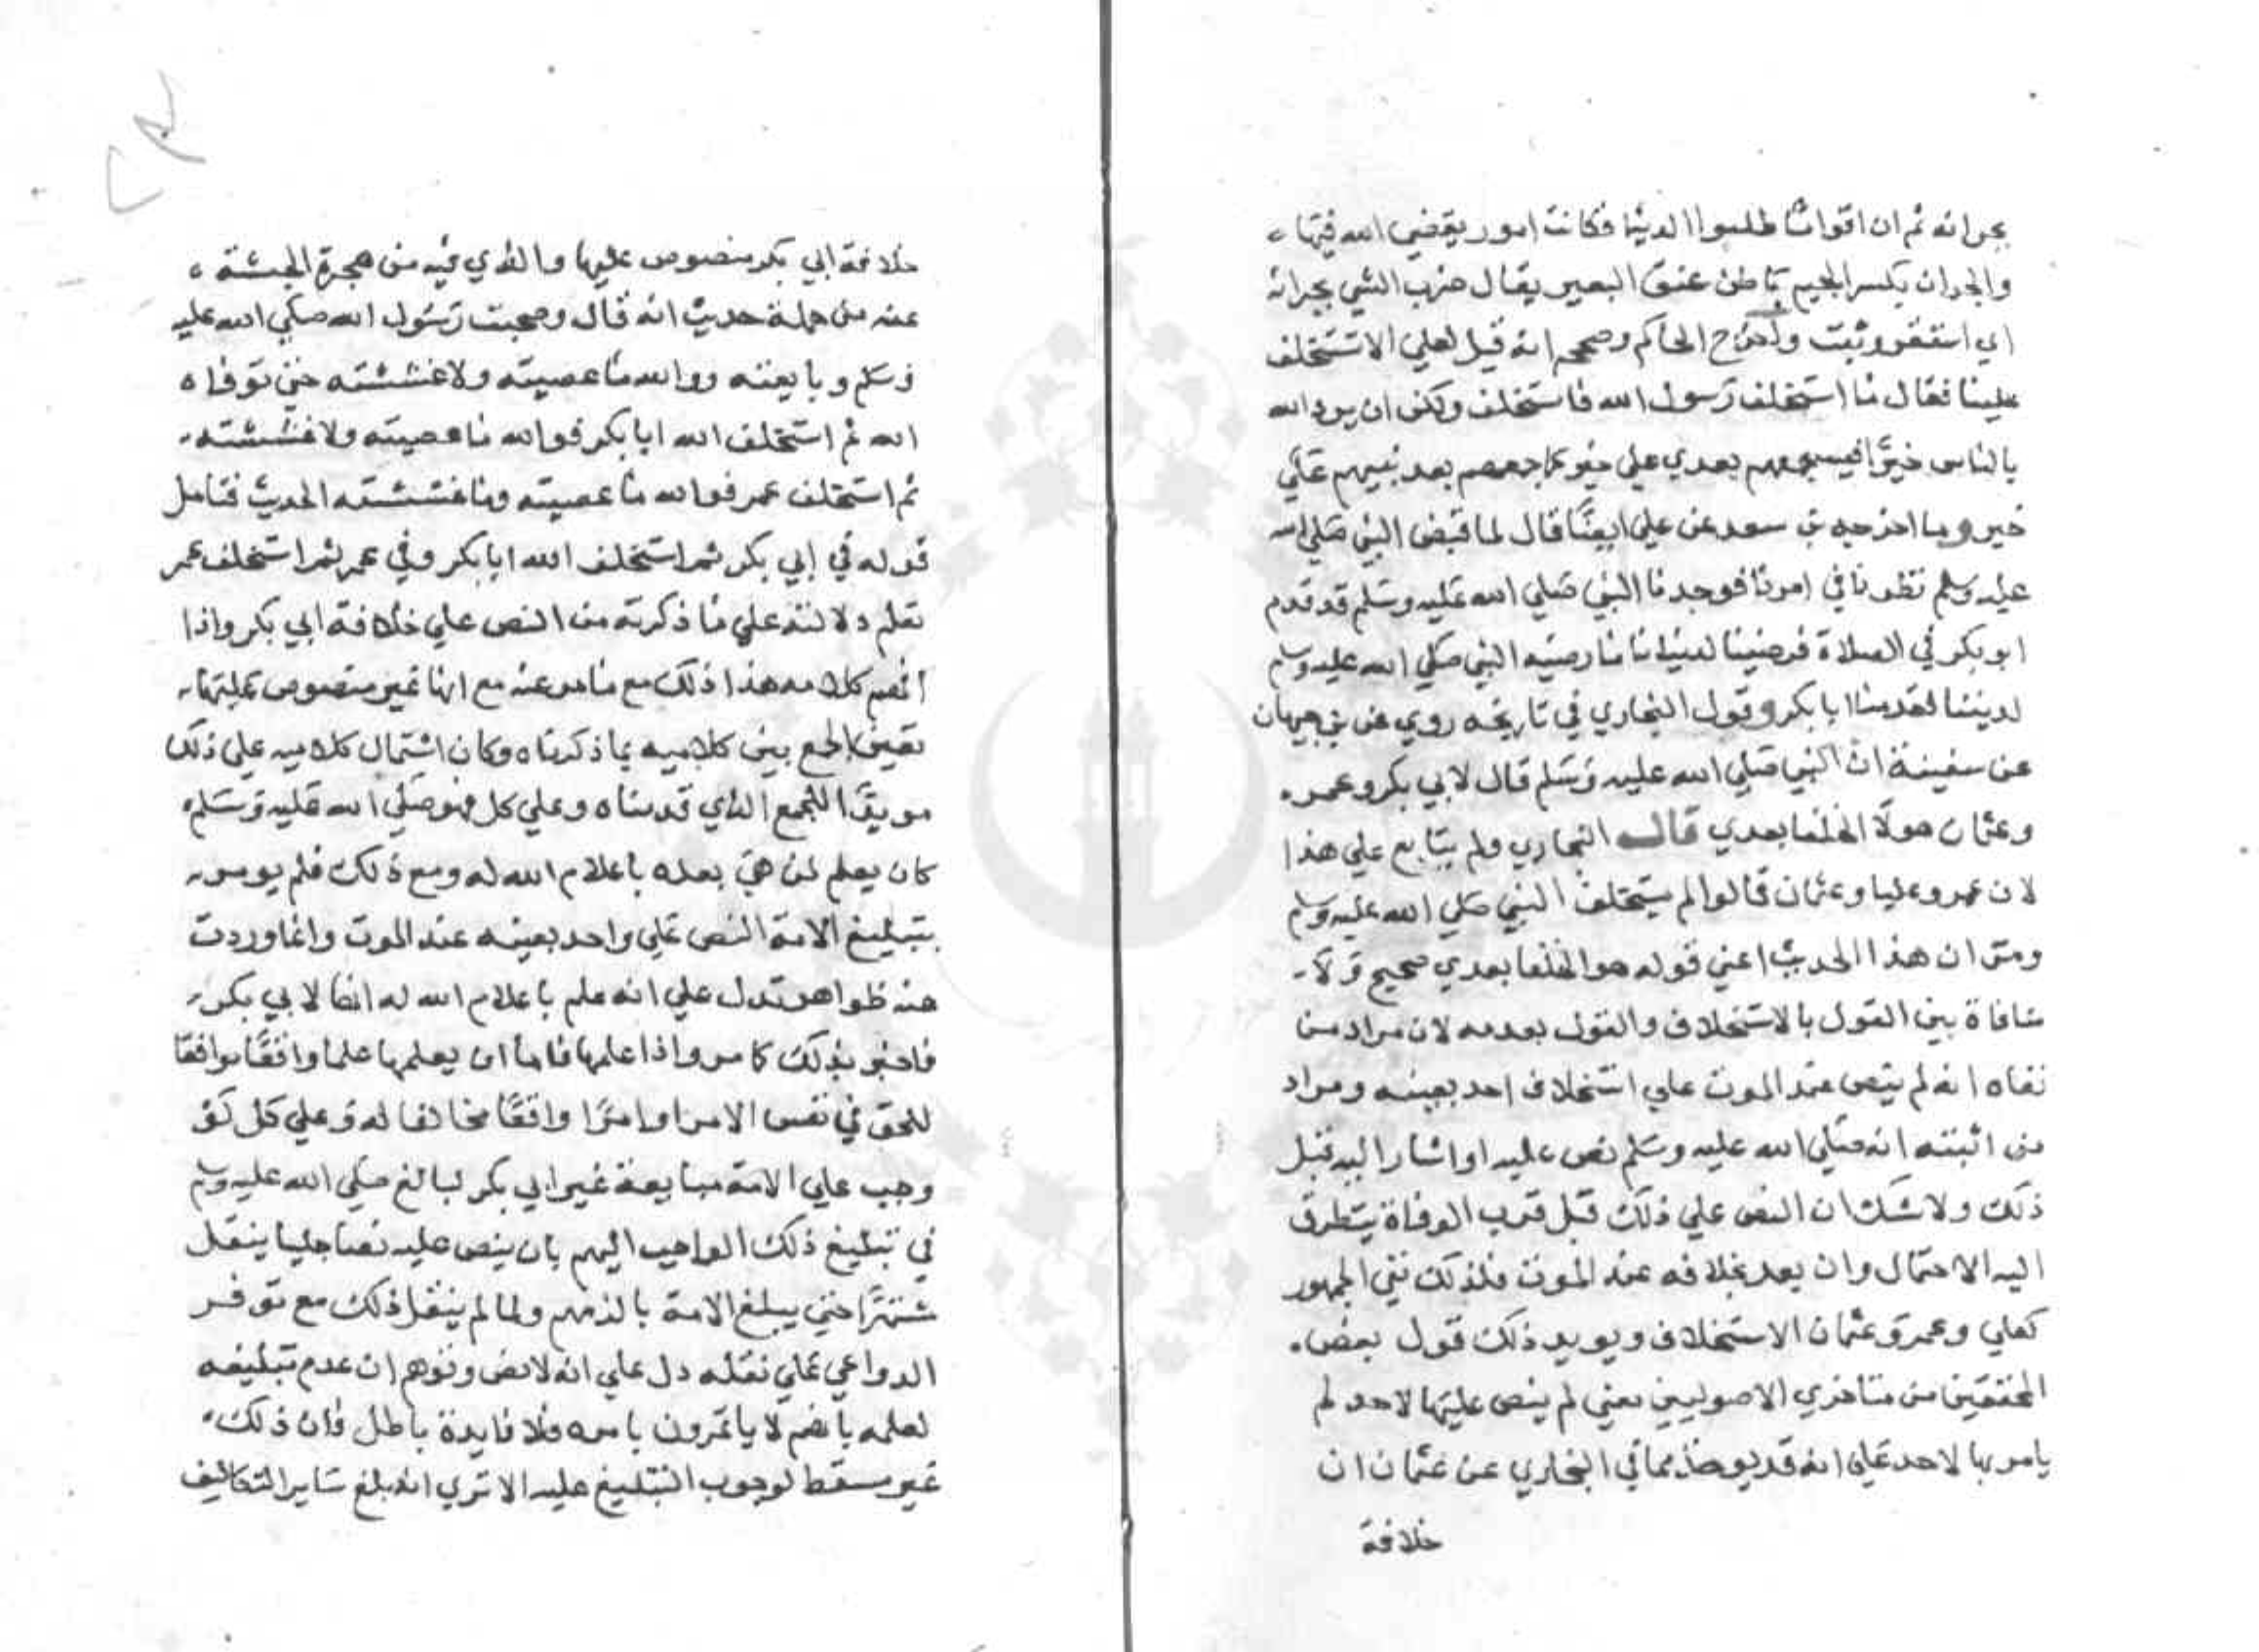 بجرانه ثم ان اقواما طلبوا الدنيا فكانت امور يقضي الله فيها
والجران بكسر الجيم باطن عنق البعير يقال ضرب الشي بجرانه
اي استقر وثبت واخرج الحاكم وصححه انه قيل لعلي الا تستخلف
علينا فقال ما استخلف رسول الله فاستخلف ولكن ان يرد الله
بالناس خيرا فسيجمعهم بعدي علي خيرهم كما جمعهم بعد نبيهم علي
خير وما اخرجه بن سعد عن علي ايضا قال لما قبض النبي صلي الله
عليه وسلم نظرنا في امرنا فوجدنا النبي صلي الله عليه وسلم قد قدم
ابو بكر في الصلاة فرضينا لدنيانا ما رضيه النبي صلي الله عليه وسلم
لديننا فقدمنا ابا بكر وقول البخاري في تاريخه روي عن بن جمهان
عن سفينة ان النبي صلي الله عليه وسلم قال لابي بكر وعمر
وعثمان هولا الخلفا بعدي قال البخاري ولم يتابع علي هذا
لان عمر وعليا وعثمان قالوا لم يستخلف النبي صلي الله عليه وسلم
ومر ان هذا الحديث اعني قوله هو الخلفا بعدي صحيح ولا
منافاة بين القول بالاستخلاف والقول بعدمه لان مراد من
نفاه انه لم ينص عند الموت علي استخلاف احد بعينه ومراد
من اثبته انه صلي الله عليه وسلم نص عليه او اشار اليه قبل
ذلك ولا شك ان النص علي ذلك قبل قرب الوفاة يتطرق
اليه الاحتمال وان يعد بخلافه عند الموت فلذلك نفي الجمهور
كعلي وعمر وعثمان الاستخلاف ويويد ذلك قول بعض
المحققين من متاخري الاصوليين معني لم ينص عليها لاحد لم
يامر بها لاحد علي انه قد يوخذ مما في البخاري عن عثمان ان
خلافة
خلافة ابي بكر منصوص عليها والذي فيه من هجرة الحبشة
عنه من جملة حديث انه قال وصحبت رسول الله صلي الله عليه
وسلم وبايعته ووالله ما عصيته ولا غششته حتي توفاه
الله ثم استخلف الله ابا بكر فوالله ما عصيته ولا غششته
ثم استخلف عمر فوالله ما عصيته وما غششته الحديث فتامل
قوله في ابي بكر ثم استخلف الله ابا بكر وفي عمر ثم استخلف عمر
تعلم دلالته علي ما ذكرته من النص علي خلافة ابي بكر واذا
افهم كلامه هذا ذلك مع ما مر عنه مع انها غير منصوص عليها
تعين الجمع بين كلاميه بما ذكرناه وكان اشتمال كلاميه علي ذلك
مويدا للجمع الذي قدمناه وعلي كل فهو صلي الله عليه وسلم
كان يعلم لمن هي بعده باعلام الله له ومع ذلك فلم يومر
بتبليغ الامة النص علي واحد بعينه عند الموت وانما وردت
عنه ظواهر تدل علي انه علم باعلام الله له انها لابي بكر
فاخبر بذلك كما مر واذا علمها فاما ان يعلمها علما واقعا موافقا
للحق في نفس الامر او امرا واقعا مخالفا له وعلي كل لو
وجب علي الامة مبايعة غير ابي بكر لبالغ صلي الله عليه وسلم
في تبليغ ذلك الواجب اليهم بان ينص عليه نصا جليا ينقل
مشتهرا حتي يبلغ الامة ما لزمهم ولما لم ينقل ذلك مع توفر
الدواعي علي نقله دل علي انه لا نص وتوهم ان عدم تبليغه
لعلمه بانهم لا ياتمرون بامره فلا فايدة باطل فان ذلك
غير مسقط لوجوب التبليغ عليه الا تري انه بلغ ساير التكاليف